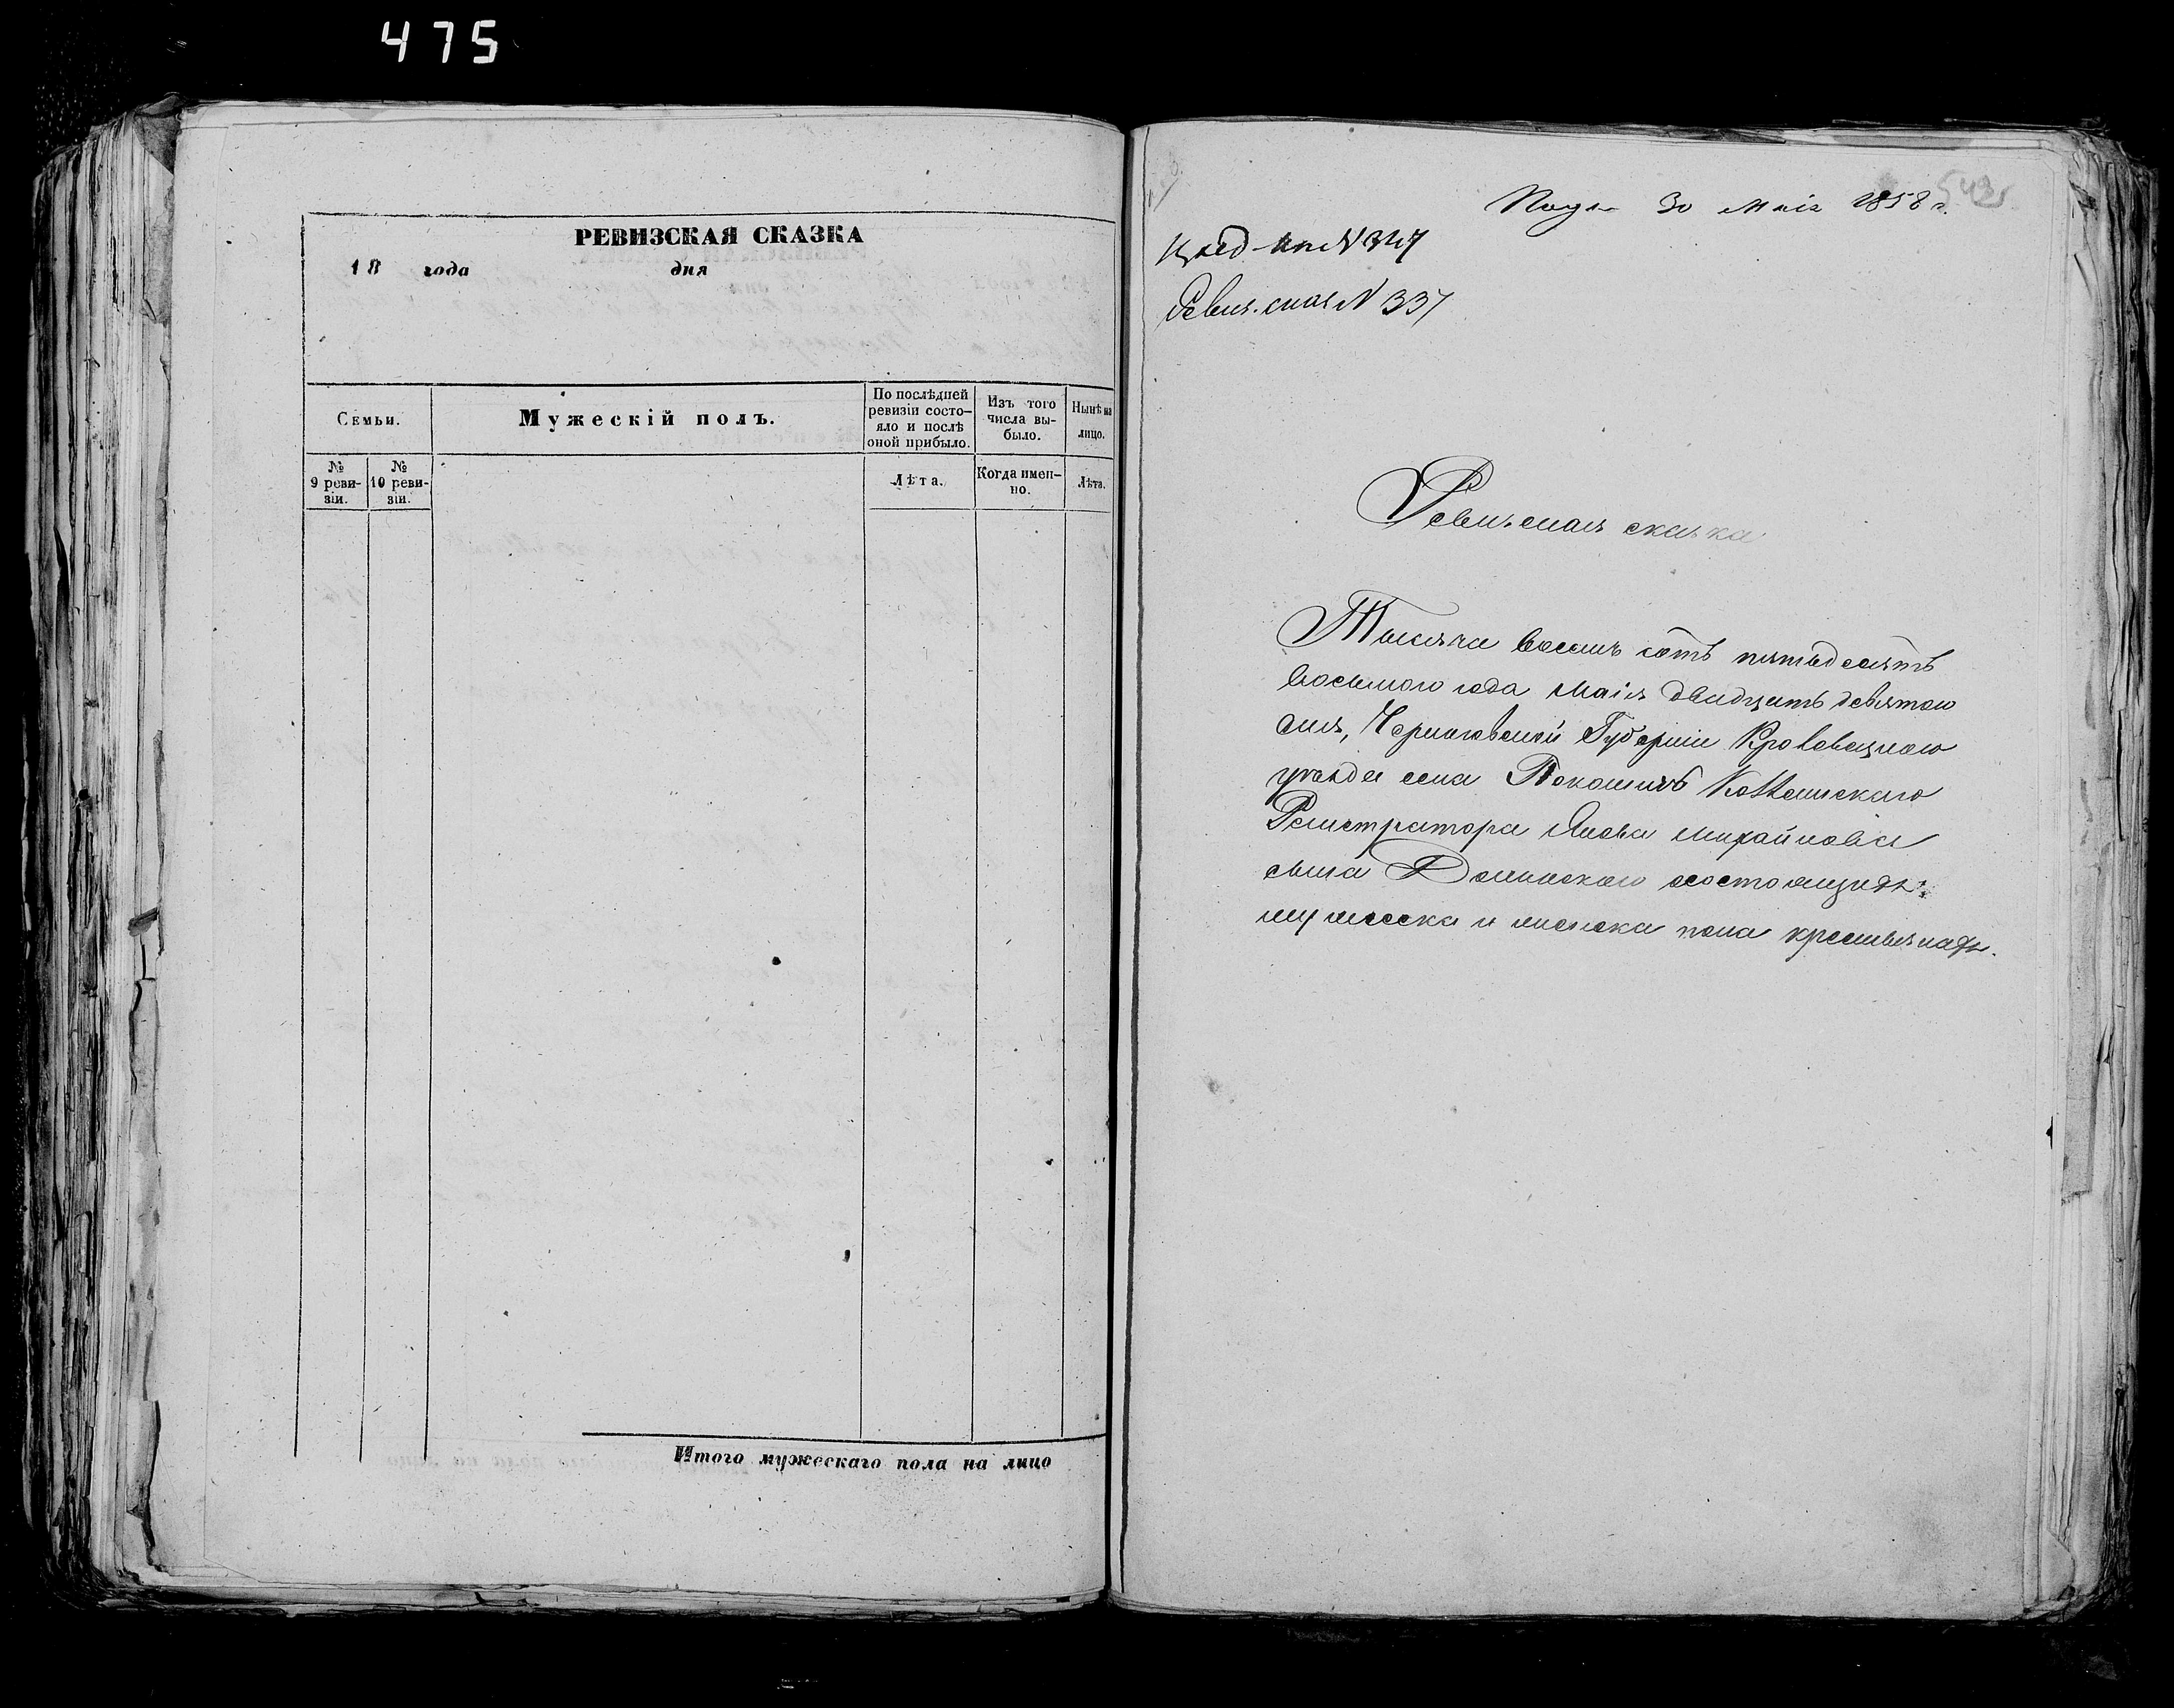 475
РЕВИЗСКАЯ СКАЗКА
18 года дня
Семьи.
Мужескій полъ.
По послѣдней
ревизіи состо-
яло и послѣ
оной прибыло.
Изъ того
числа вы-
было.
Нынѣ на
лицо.
№
9 реви-
зіи.
№
10 реви-
зіи.
Лѣта.
Когда имен-
но.
Лѣта.
Итого мужескаго пола на лицо
30 Маія 1858 г.
№ 347
Ревиз. сказ № 337
Ревизская сказка
Тысяча восемь сотъ пятьдесятъ
восьмого года Маія двадцать девятого
дня, Черниговской Губерніи Кролевецкого
уѣзда села Покошичъ Коллежскаго
Регистратора Якова Михайлова
сына Долинского состоящихъ
мужеска и женска пола крестьянахъ.